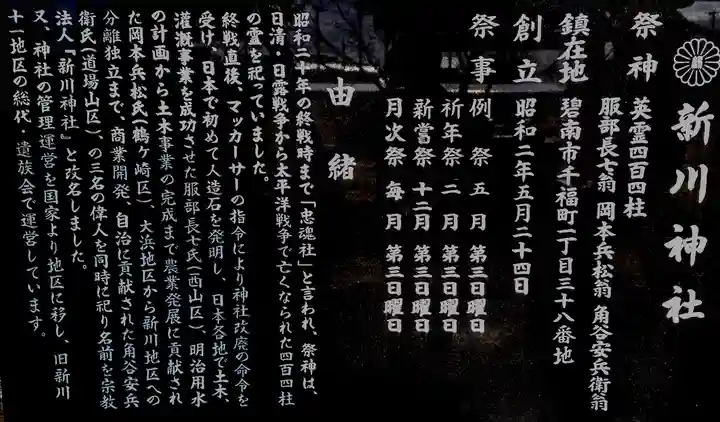 新川神社
祭神 英霊四百四柱
服部長七翁 岡本兵松翁 角谷安兵衛翁
鎮在地 碧南市千福町二丁目三十八番地
創立 昭和二年五月二十四日
祭事 例祭 五月 第三日曜日
祈年祭 二月 第三日曜日
新嘗祭 十二月 第三日曜日
月次祭 毎月 第三日曜日
由緒
昭和二十年の終戦時まで「忠魂社」と言われ、祭神は、
日清・日露戦争から太平洋戦争で亡くなられた四百四柱
の霊を祀っていました。
終戦直後、マッカーサーの指令により神社改廃の命令を
受け、日本で初めて人造石を発明し、日本各地で土木、
灌漑事業を成功させた服部長七氏(西山区)、明治用水
の計画から土木事業の完成まで農業発展に貢献され
た岡本兵松氏(鶴ヶ崎区)、大浜地区から新川地区への
分離独立まで、商業開発、自治に貢献された角谷安兵
衛氏(道場山区)、の三名の偉人を同時に祀り名前を宗教
法人『新川神社』と改名しました。
又、神社の管理運営を国家より地区に移し、旧新川
十一地区の総代・遺族会で運営しています。